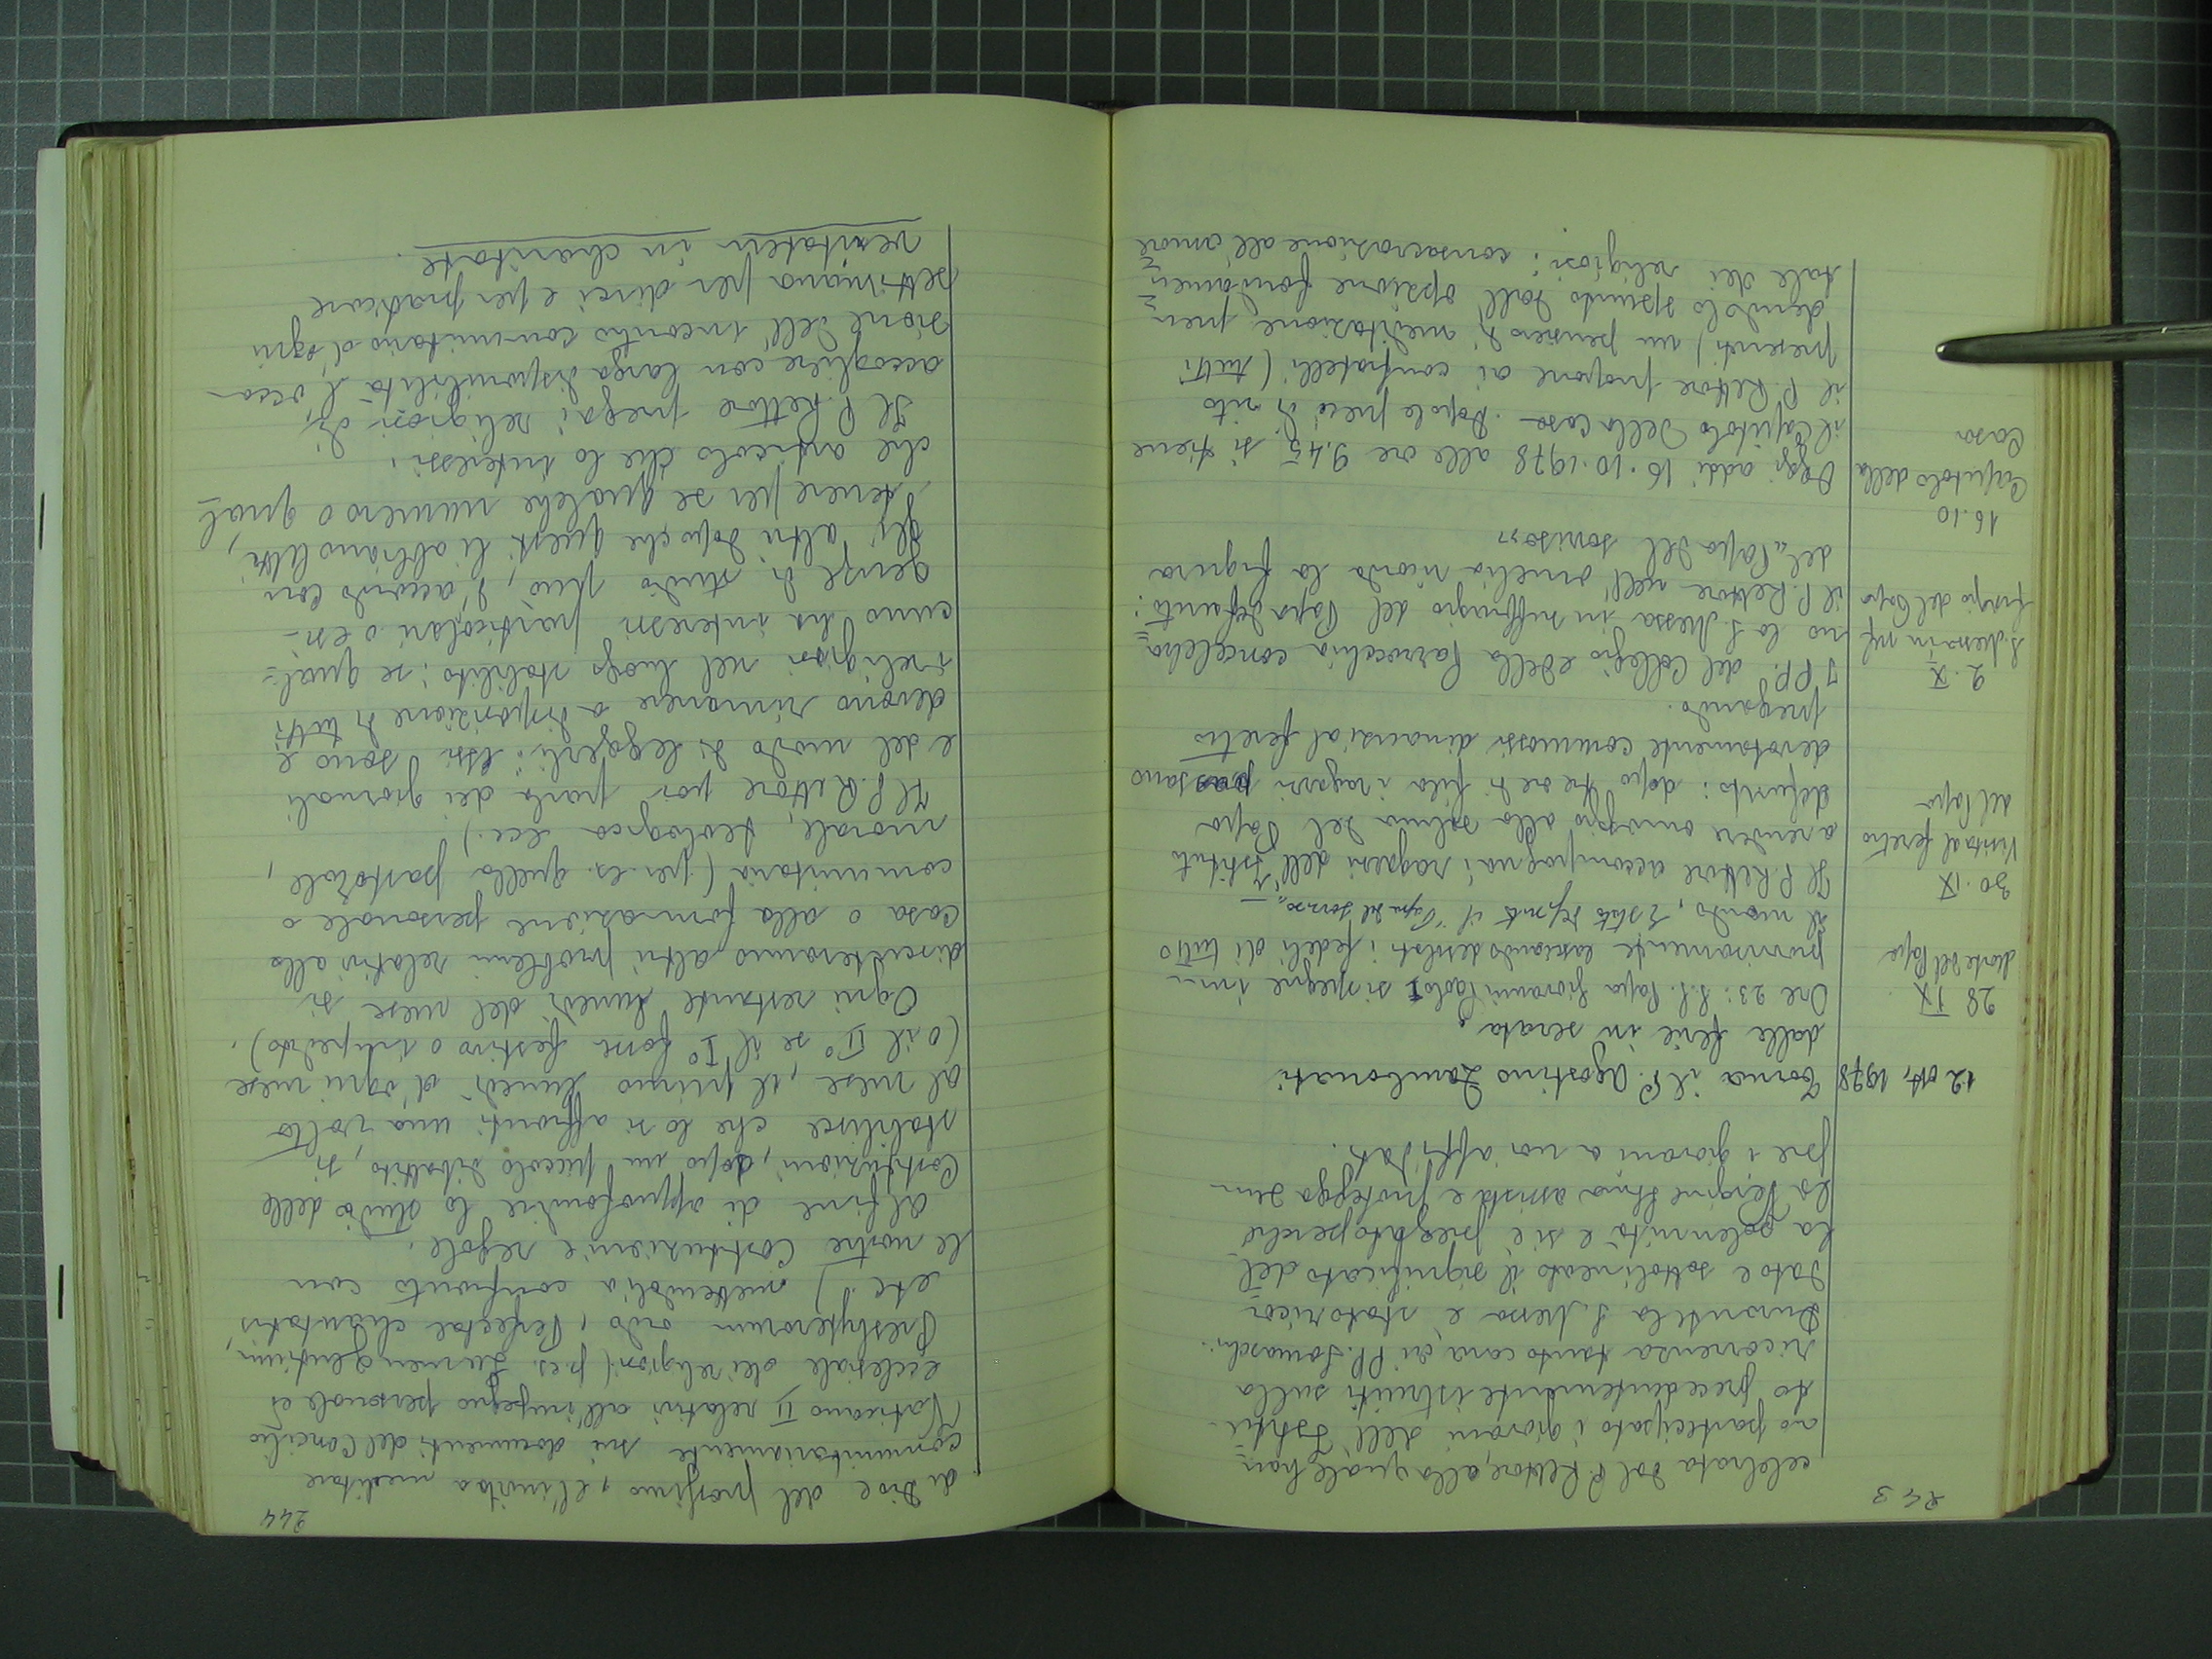 243
celebrata dal P. Rettore, alla quale han=
no partecipato i giovani dell'Istitu-
to precedentemente istruiti sulla
ricorrenza tanto cara ai PP. Somaschi.
Durante la S. Messa è stato ricor
dato e sottolineato il significato del
la solennità e si è pregato perché
la Vergine SS.ma assista e protegga sem
pre i giovani a noi affidati.
12 ott. 1978
Torna il P. Agostino Zambonati
dalle ferie in serata.
28 IX
Morte del Papa
Ore 23: S.S. Papa Giovanni Paolo I si spegne im-
provvisamente lasciando desolati i fedeli di tutto
il mondo. È stato definito il "Papa del sorriso" —
30. IX
Visita al feretro
del Papa
Il P. Rettore accompagna i ragazzi dell'Istituto
a rendere omaggio alla salma del Papa
defunto: dopo tre ore di fila i ragazzi passano
devotamente commossi dinanzi al feretro
pregando.
2. X
S. Messa in suf
fragio del Papa
I PP. del Collegio e della Parrocchia concelebra=
no la S. Messa in suffragio del Papa defunto:
il P. Rettore nell'omelia ricorda la figura
del "Papa del sorriso"
16.10
Capitolo della
Casa
Oggi addì 16.10.1978 alle ore 9,45 si tiene
il Capitolo della Casa. Dopo le preci di rito
il P. Rettore propone ai confratelli (tutti
presenti) un pensiero di meditazione, pren=
dendolo spunto dall'opzione fondamen=
tale dei religiosi: consacrazione all'amore
244
di Dio e del prossimo, e l'invito a meditare
comunitariamente sui documenti del Concilio
Vaticano II relativi all'impegno personale ed
ecclesiale dei religiosi (p.es. Lumen gentium,
Presbyterorum ordo, Perfectae charitatis,
etc.) mettendoli a confronto con
le nostre Costituzioni e regole.
Al fine di approfondire lo studio delle
Costituzioni, dopo un piccolo dibattito, si
stabilisce che lo si affronti una volta
al mese, il primo lunedì d'ogni mese
(o il II° se il I° fosse festivo o impedito).
Ogni restante lunedì del mese si
discuteranno altri problemi relativi alla
Casa o alla formazione personale o
comunitaria (per es. quella pastorale,
morale, teologica ecc.)
Il P. Rettore poi parla dei giornali
e del modo di leggerli: essi sono e
devono rimanere a disposizione di tutti
i religiosi nel luogo stabilito: se qual=
cuno ha interessi particolari o esi-
genze di studio può, d'accordo con
gli altri dopo che questi li abbiano letti,
tenere per se qualche numero o qual=
che articolo che lo interessi.
Il P. Rettore prega i religiosi di
accogliere con larga disponibilità l'occa-
sione dell'incontro comunitario d'ogni
settimana per dirci e per praticare
veritatem in charitate.